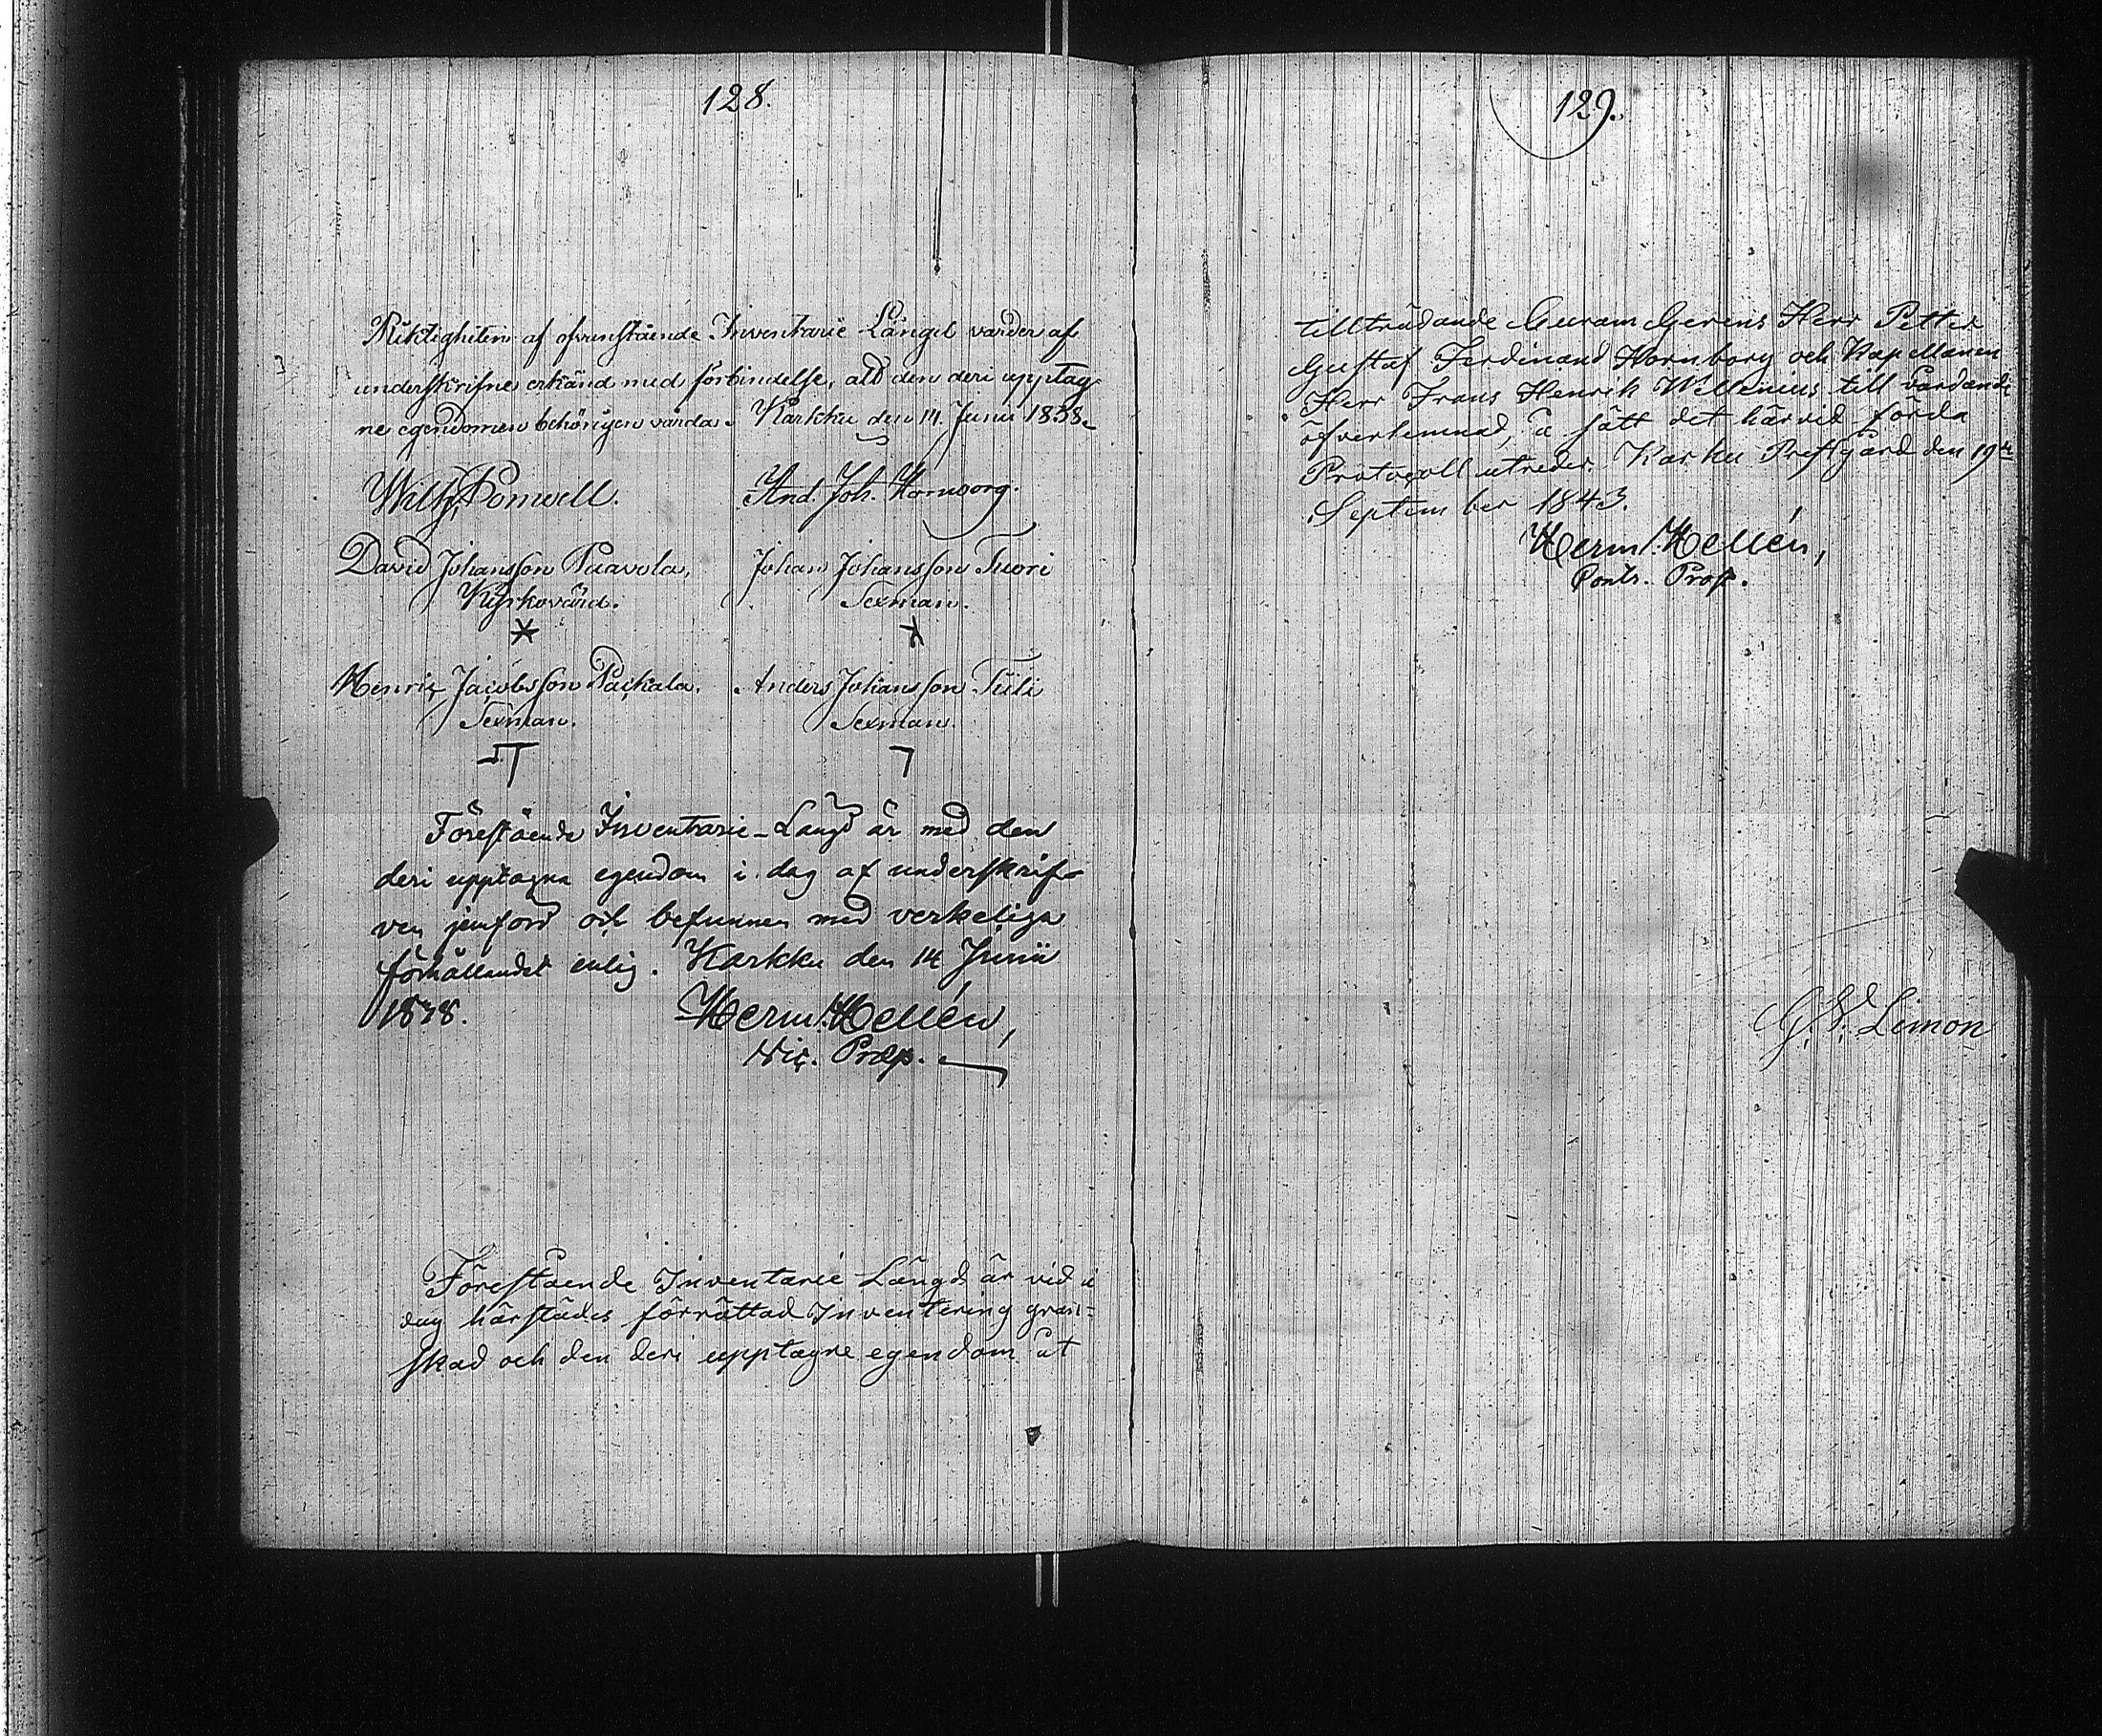 128.
Riktigheten af ofvenstående Inventarie Längd varder af
underskrifne erkänd med förbindelse, att den deri upptag-
ne egendomen behörigen vårda. Karkku den 14. Junii 1838.
Wilh. Ponwell. And. Joh. Hornborg.
David Johansson Paavola, Johan Johansson Tuori
Kyrkovärd. Sexman.
Henric Jacobsson Packala. Anders Johansson Tiili
Sexman. Sexman.
Förestående Inventarie-Längd är med den
deri upptagna egendom i dag af underskrif-
ven jemförd och befunnen med verkeliga
förhållandet enlig. Karkku den 14 Junii
1838. Herm. Hellén,
Vic. Præp.
Förestående Inventarie Längd är vid i
dag härstädes förrättad Inventering gran-
skad och den deri upptagne egendom åt
129.
tillträdande Curam Gerens Herr Petter
Gustaf Ferdinand Hornborg och Kapellanen
Herr Frans Henrik Wellenius till vårdande
öfverlemnad, å sätt det härvid förda
Protocoll utreder. Karku Prestgård den 19de
September 1843.
Herm. Hellén,
Contr. Prost.
G. E. Limon